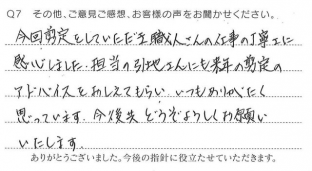 Q7 その他、ご意見ご感想、お客様の声をお聞かせください。
今回剪定をしていただき職人さんの仕事の丁寧さに
感心しました。担当の引地さんにも来年の剪定の
アドバイスをおしえてもらい、いつもありがたく
思っています。今後共どうぞよろしくお願い
いたします。
ありがとうございました。今後の指針に役立たせていただきます。